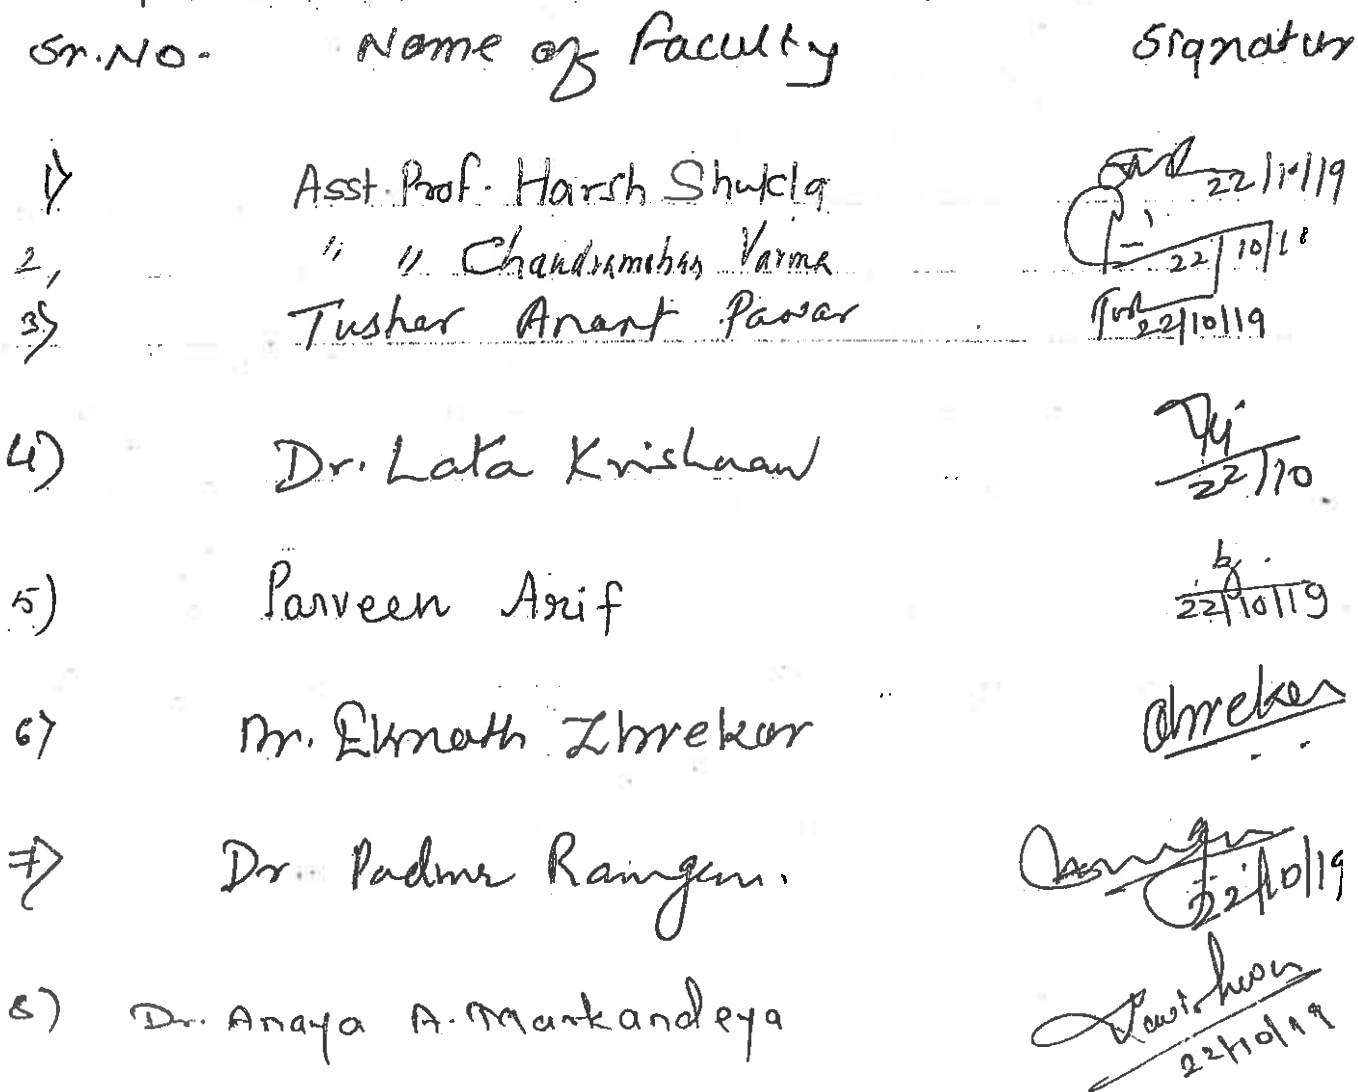 Sr.No. Name of Faculty Signatur
1) Asst. Prof. Harsh Shukla 22/10/19
2, " " Chandramohan Varma 22/10/18
3) Tushar Anant Pawar 22/10/19
4) Dr. Lata Krishnan 22/10
5) Parveen Arif 22/10/19
6) Dr. Eknath Zhrekar Zhrekar
7) Dr. Padma Rangan. 22/10/19
8) Dr. Anaya A. Markandeya 22/10/19